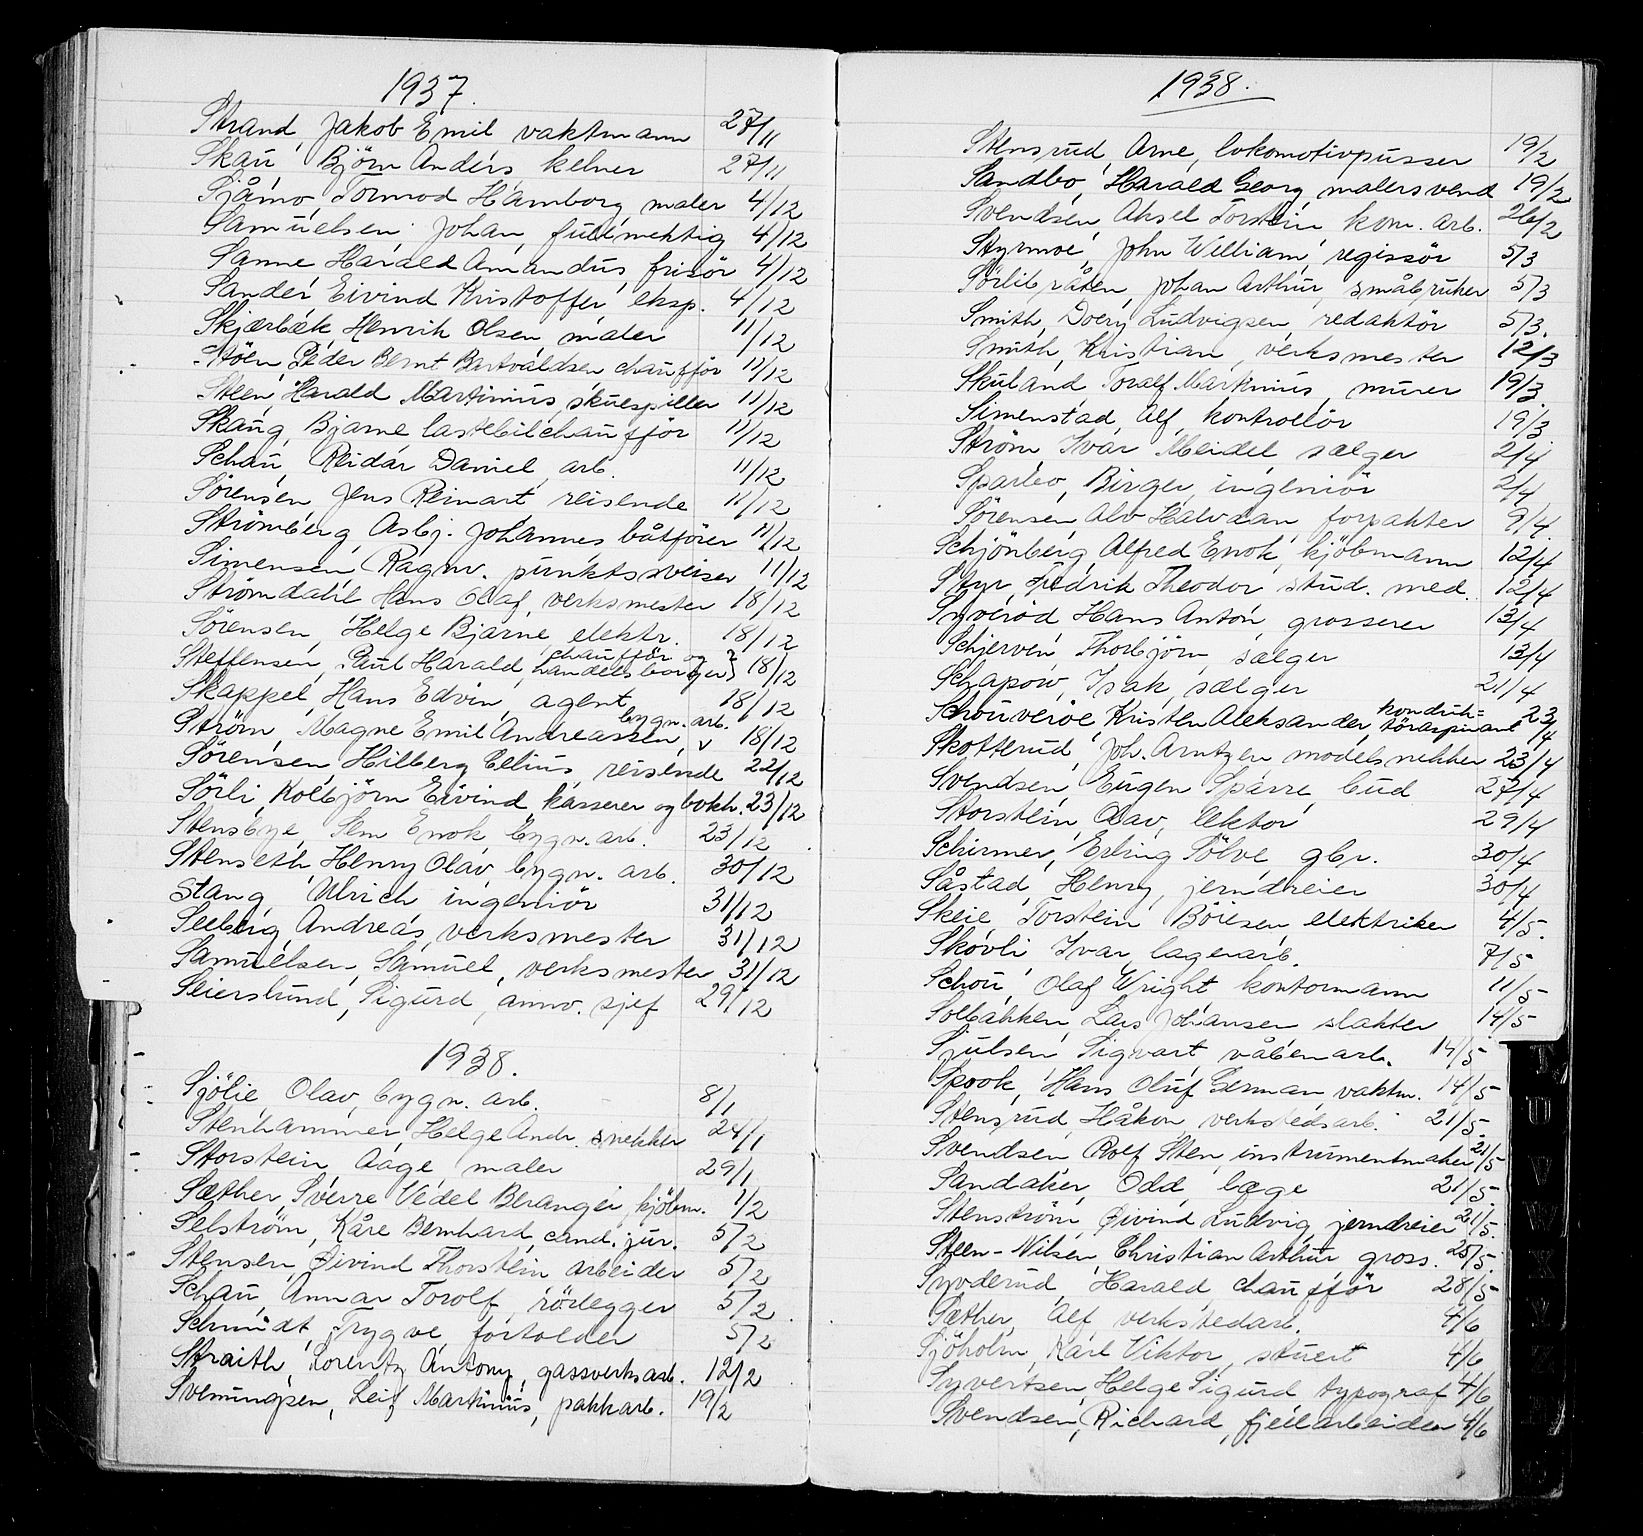 1937.
Strand, Jakob Emil vaktmann 27/11
Skau, Björn Anders, kelner 27/11
Sjåmo, Tormod Hamborg, maler 4/12
Samuelsen Johan, fullmektig 4/12
Sanne Harald Amandus, frisör 4/12
Sander, Eivind Kristoffer, eksp. 4/12
Skjærbæk Henrik Olsen, maler 11/12
Støen, Peder Bernt Bertvaldsen chaufför 11/12
Steen, Harald Martinius, skuespiller 11/12
Skaug, Bjarne lastebilchaufför 11/12
Schau, Reidar Daniel, arb. 11/12
Sørensen Jens Reinart, reisende 11/12
Strömberg, Asbj. Johannes båtfører 11/12
Simensen, Ragnv. punktsveiser 11/12
Strömdahl Hans Olaf, verksmester 18/12
Sørensen, Helge Bjarne, elektr. 18/12
Steffensen, Paul Harald, chaufför og handelsborger 18/12
Skappel, Hans Edvin, agent 18/12
Ström, Magne Emil Andreassen, bygn. arb. 18/12
Sörensen Hilberg Celius, reisende 22/12
Sörli, Kolbjörn Eivind, kasserer og bokh. 23/12
Stensbye, Enok bygn. arb. 23/12
Stenseth, Henry Olav, bygn. arb. 30/12
Stang, Ulrich ingeniör 31/12
Seeberg, Andreas, verksmester 31/12
Samuelsen, Samuel, verksmester 31/12
Seierslund, Sigurd, annv. sjef 29/12
1938.
Sjölie Olav, bygn. arb. 8/1
Stenhammer, Helge Andr. snekker 24/1
Storstein, Aage maler 29/1
Sæther Sverre Vedel Beranger, kjöbm. 1/2
Selström, Kåre Bernhard, cand. jur. 5/2
Stensen, Øivind Thorstein arbeider 5/2
Schau, Annar Torolf, rörlegger 5/2
Schmidt, Trygve, fortolder 5/2
Straith, Lorentz Antony, gassverksarb. 12/2
Svenningsen, Leif Martinius, pakkarb. 19/2
1938.
Stensrud, Arne, lokomotivpusser 19/2
Sandbo, Harald Georg, malersvend 19/2
Svendsen, Aksel Torstein kom. arb. 26/2
Styrmoe, John William, regissör 5/3
Sörlibråten, Johan Arthur, småbruker 5/3
Smith, Doery Ludvigsen, redaktör 5/3.
Smith, Kristian, verksmester 12/3
Skuland Toralf Martinius, murer 19/3.
Simenstad, Alf, kontrollör 19/3.
Ström, Ivar Meidel sælger 2/4
Sparbo, Birger, ingeniör 2/4
Sörensen Alv Halvdan, forpakter 9/4.
Schjönberg, Alfred Enok, kjöbmann 12/4
Styr, Fredrik Theodor stud. med. 12/4
Syveröd Hans Anton, grosserer 13/4
Schjerven Thorbjörn, sælger 13/4
Schapow, Isak, sælger 21/4
Schouveröe, Kristen Aleksander, konduktöraspirant 23/4
Skotterud, Joh. Arntzen modelsnekker 23/4
Svendsen, Eugen Sparre, bud 27/4
Storstein Olav, lektor 29/4
Schirmer, Erling Sölve, gbr. 30/4
Såstad, Henry, jerndreier 30/4
Skeie, Torstein Böiesen elektriker 4/5.
Skovli Ivar, lagerarb. 7/5
Schou, Olaf Wright kontormann 11/5
Solbakken, Lars Johansen slakter 14/5
Sjulsen, Sigvart våbenarb. 14/5
Spook, Hans Oluf German, vaktm. 14/5
Stensrud, Håkon, verkstedsarb. 21/5.
Svendsen Rolf Sten, instrumentmaker 21/5
Sandaker, Odd, læge 21/5
Stenström, Øivind Ludvig, jerndreier 21/5.
Steen-Nilsen, Christian Arthur gross. 25/5.
Syvderud, Harald chaufför 28/5
Sæther, Alf verkstedarb. 4/6
Sjöholm, Karl Viktor, stuert 4/6
Syvertsen, Helge Sigurd typograf 4/6
Svendsen, Richard, fjellarbeider 4/6
T
U
V
W
X
Y
Z